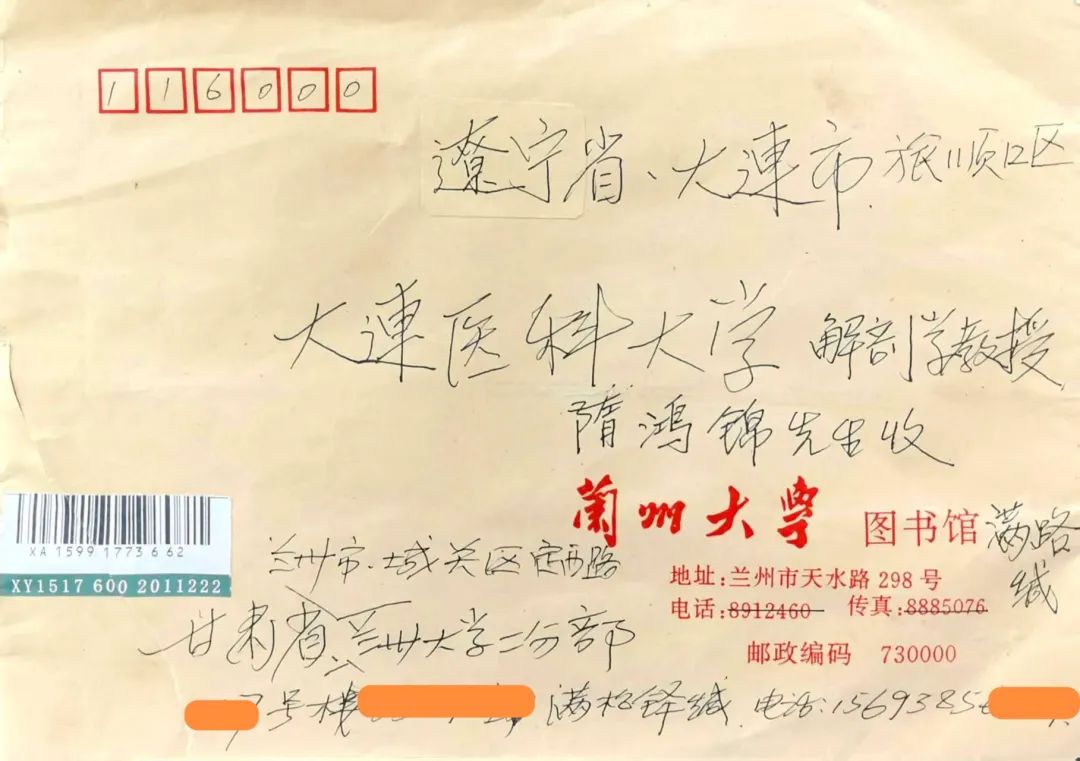 116000
遼宁省、大連市旅順口区
大連医科大学 解剖学教授
隋鸿锦先生收
兰州大学 图书馆 满路
缄
地址:兰州市天水路 298 号
电话:8912460 传真:8885076
邮政编码 730000
XA 1599 1773 6 62
XY1517 600 2011222
兰州市、城关区定西路
甘肃省兰州大学二分部
号楼 满 缄 电话:1569385